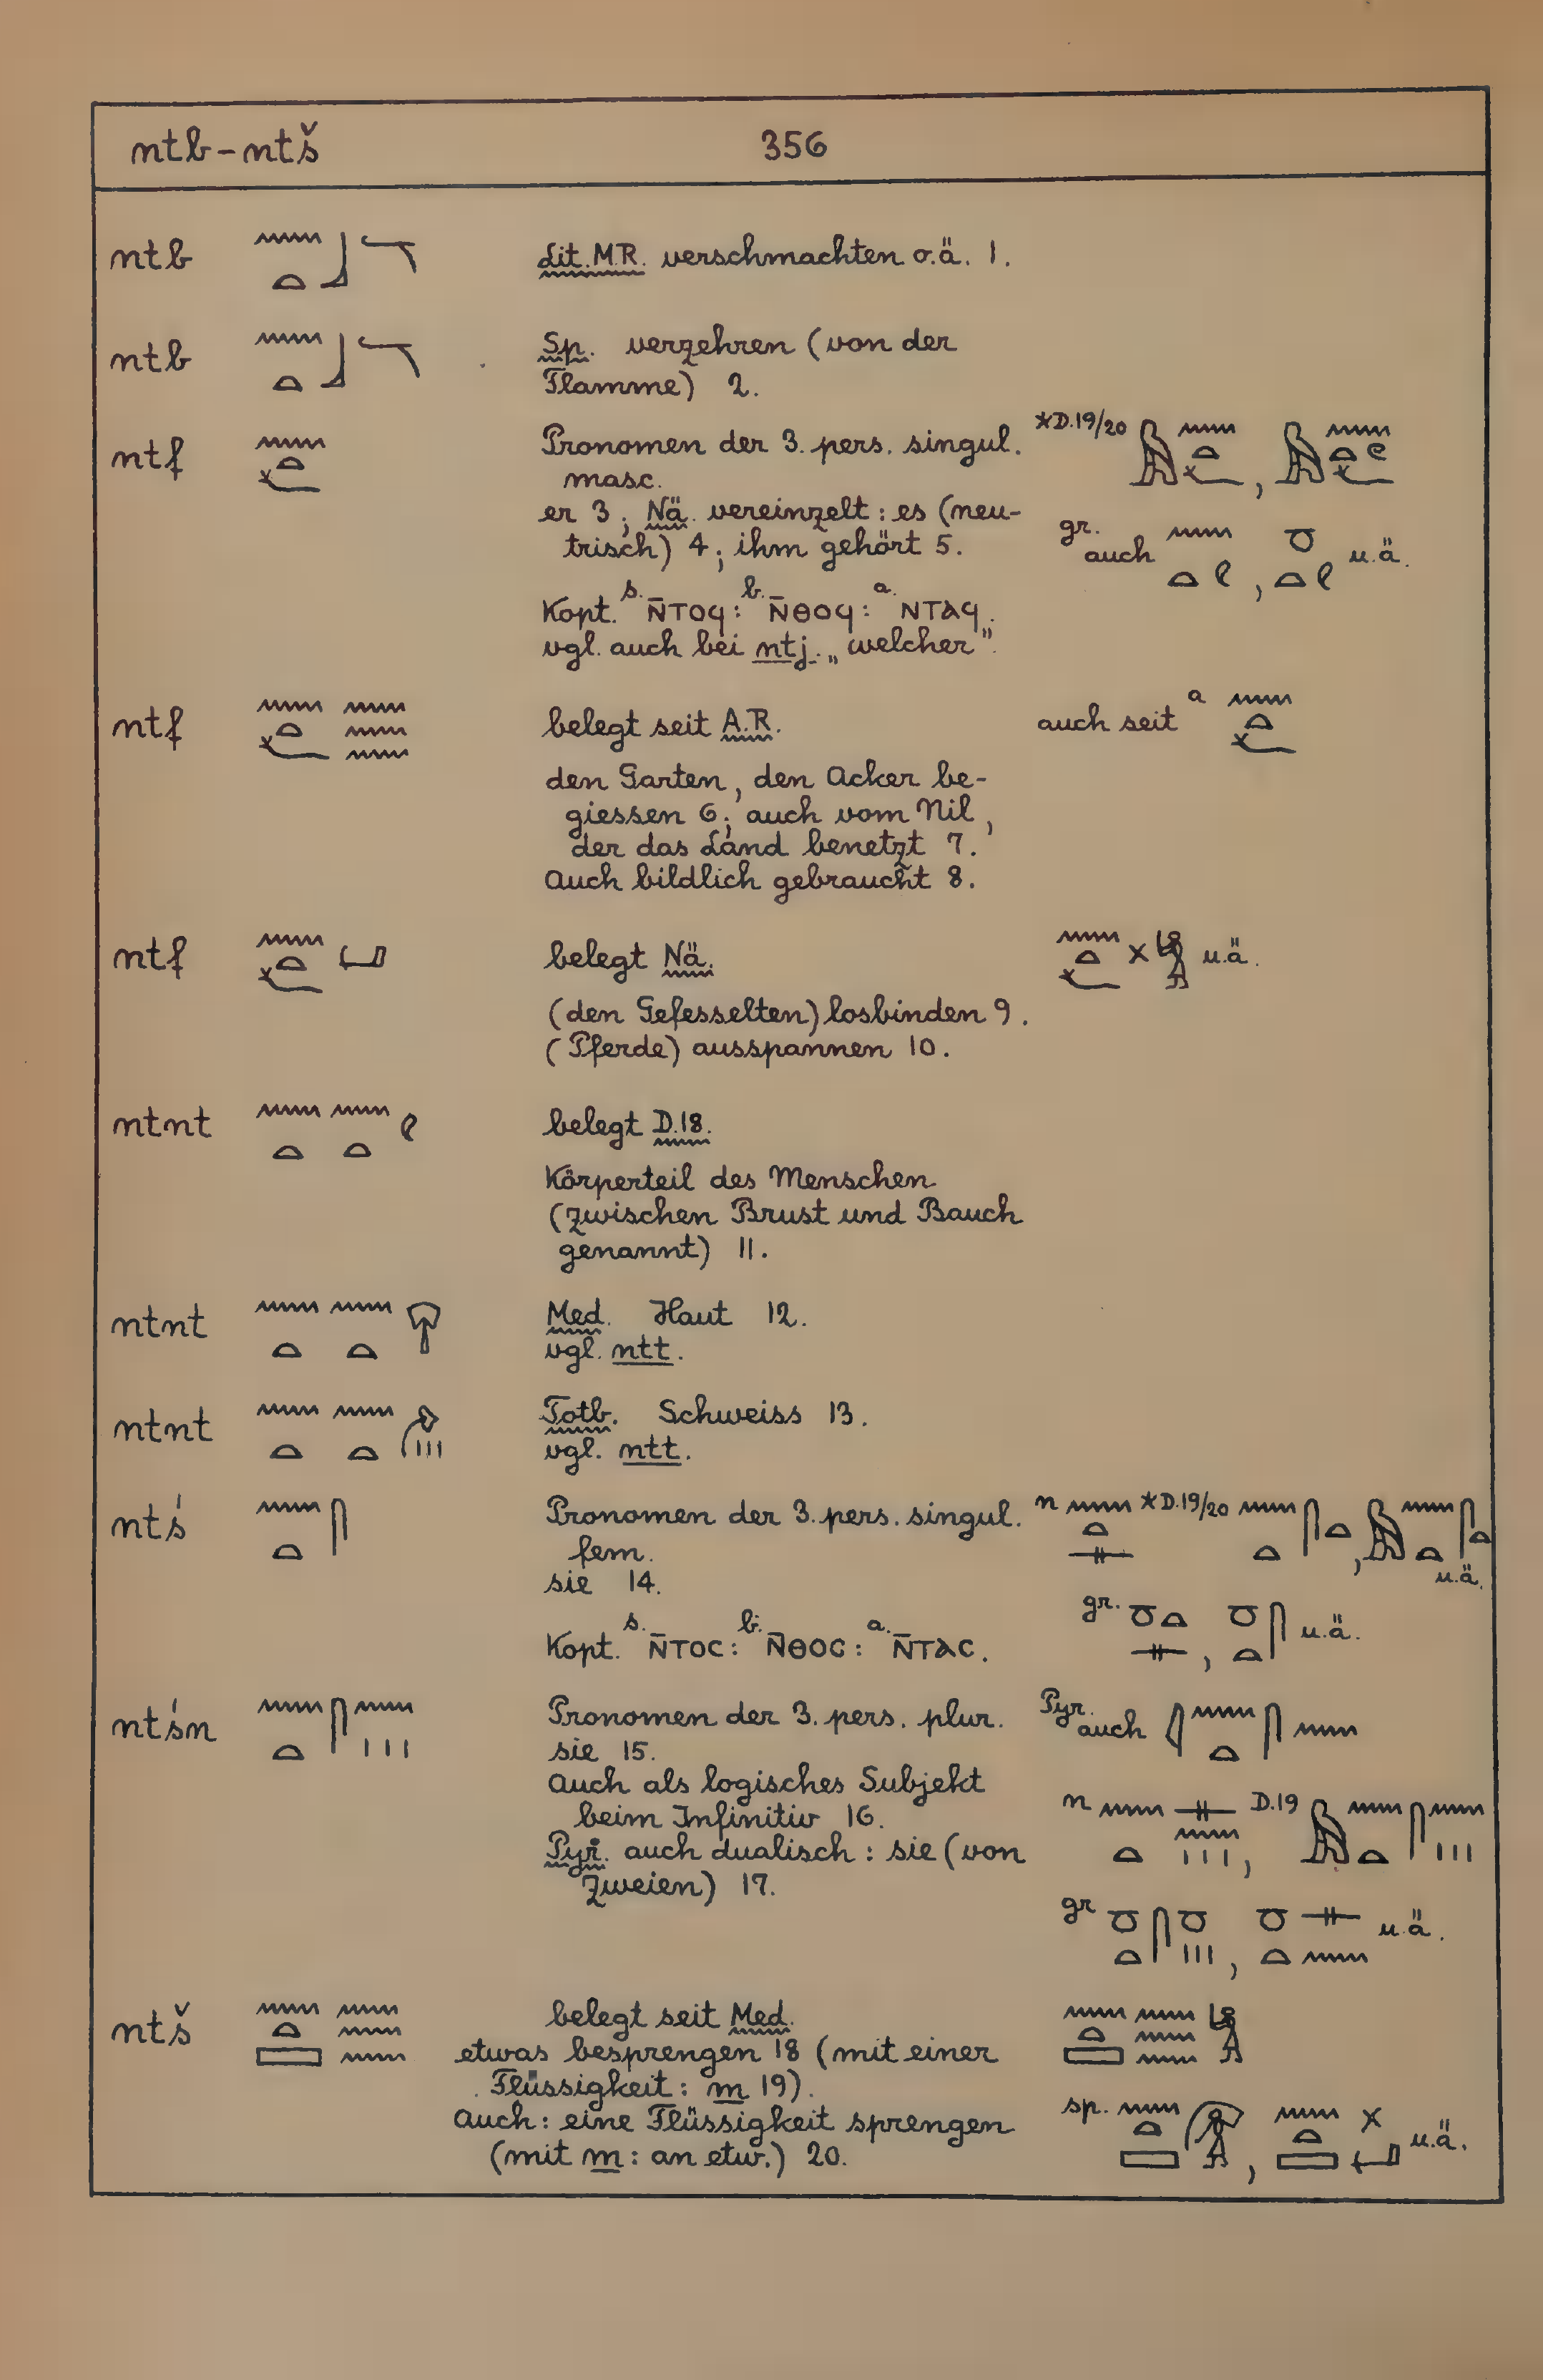 ntb – ntš 356
ntb Lit. M.R. verschmachten o.ä. 1.
ntb Sp. verzehren (von der
Flamme) 2.
ntf Pronomen der 3. pers. singul. *D.19/20
masc.
er 3; Nä. vereinzelt: es (neu-
trisch) 4; ihm gehört 5. gr. auch u.ä.
Kopt. s. N̄ΤΟϤ: b. N̄ΘΟϤ: a. ΝΤΑϤ.
vgl. auch bei ntj „welcher".
ntf belegt seit A.R. auch seit a
den Garten, den Acker be-
giessen 6; auch vom Nil,
der das Land benetzt 7.
Auch bildlich gebraucht 8.
ntf belegt Nä. u.ä.
(den Gefesselten) losbinden 9.
(Pferde) ausspannen 10.
ntnt belegt D.18.
Körperteil des Menschen
(zwischen Brust und Bauch
genannt) 11.
ntnt Med. Haut 12.
vgl. ntt.
ntnt Totb. Schweiss 13.
vgl. ntt.
ntś Pronomen der 3. pers. singul. n *D.19/20
fem. u.ä.
sie 14.
gr. u.ä.
Kopt. s. N̄TOC: b. N̄ΘOC: a. N̄TAC.
ntśn Pronomen der 3. pers. plur. Pyr. auch
sie 15.
Auch als logisches Subjekt
beim Infinitiv 16. n D.19
Pyr. auch dualisch: sie (von
Zweien) 17.
gr u.ä.
ntš belegt seit Med.
etwas besprengen 18 (mit einer
Flüssigkeit: m 19).
Auch: eine Flüssigkeit sprengen sp.
(mit m: an etw.) 20. u.ä.